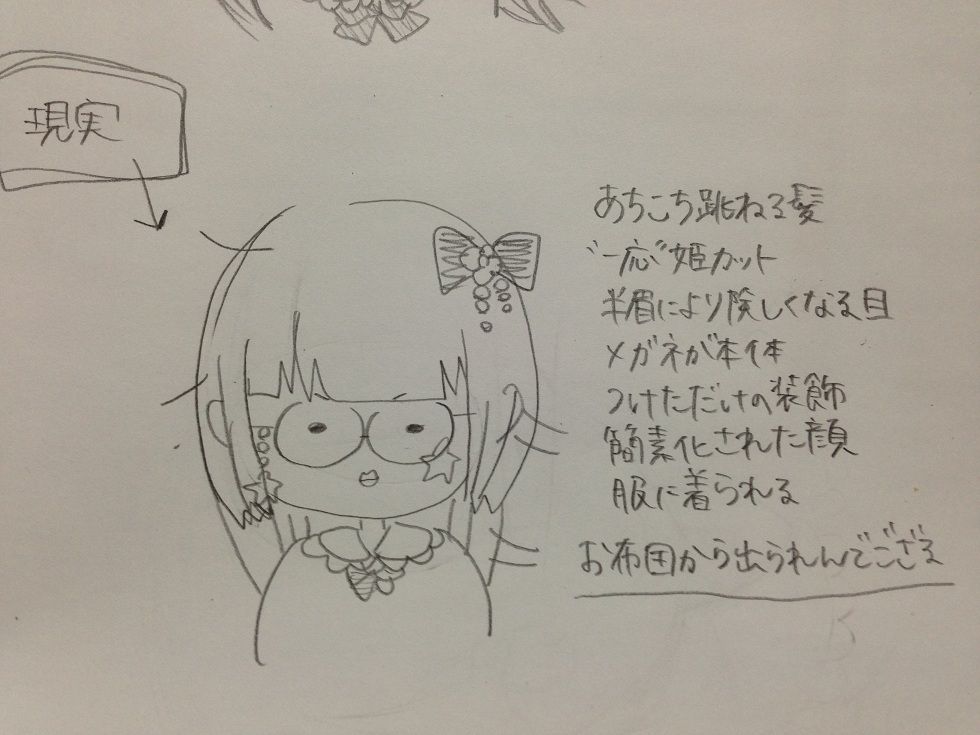 現実
あちこち跳ねる髪
“一応”姫カット
半眉により険しくなる目
メガネが本体
つけただけの装飾
簡素化された顔
服に着られる
お布団から出られんでござる